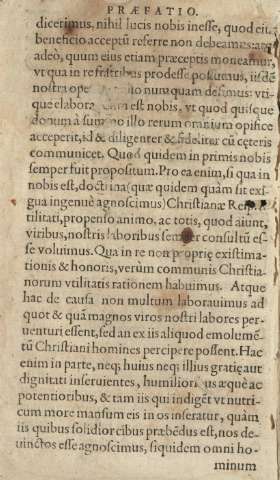 PRÆFATIO.
dicerimus, nihil lucis nobis inesse, quod eiꝰ
beneficio acceptũ referre non debeamus:
adeò, quum eius etiam præceptis moneamur,
vt qua in re fratribus prodesse possumus, iisdẽ
nostra ope nunquam desimus: vti-
que elabora est nobis, vt quod quisque
donum à summo illo rerum omnium opifice
acceperit, id & diligenter & fideliter cũ cęteris
communicet. Quod quidem in primis nobis
semper fuit propositum. Pro ea enim, si qua in
nobis est, doctrina (quæ quidem quàm sit exi-
gua ingenuè agnoscimus) Christianæ Reip.
tilitati, propenso animo, ac totis, quod aiunt,
viribus, nostris laboribus semper consultũ es-
se voluimus. Qua in re non proprię existima-
tionis & honoris, verùm communis Christia-
norum vtilitatis rationem habuimus. Atque
hac de causa non multum laborauimus ad
quot & quã magnos viros nostri labores per-
uenturi essent, sed an ex iis aliquod emolumẽ-
tũ Christiani homines percipere possent. Hac
enim in parte, neq; huius neq; illius gratię aut
dignitati inseruientes, humilioribus æquè ac
potentioribus, & tam iis qui indigẽt vt nutri-
cum more mansum eis in os inseratur, quàm
iis quibus solidior cibus præbẽdus est, nos de-
uinctos esse agnoscimus, siquidem omni ho-
minum